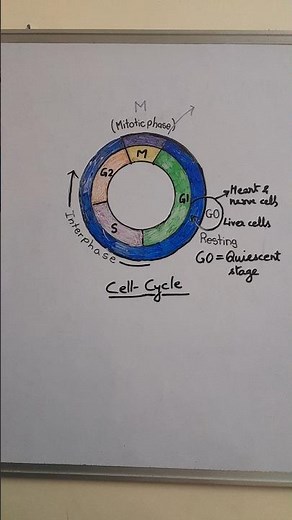 M
(Mitotic phase)
M
G2
G1
S
Interphase
G0
Heart &
nerve cells
Liver cells
Resting
G0 = Quiescent
stage
Cell-Cycle